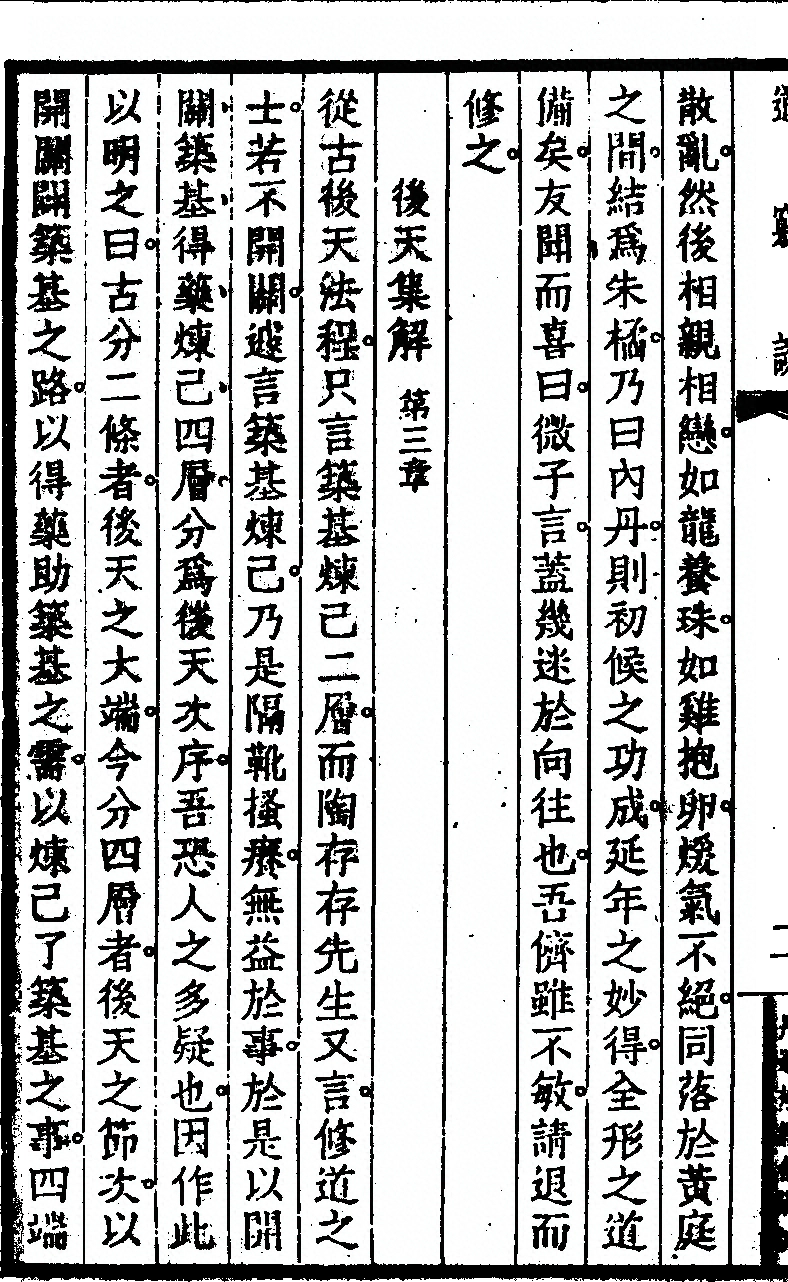 散亂然後相親相戀如龍養珠如雞抱卵煖氣不絕同落於黃庭
之間結爲朱橘乃曰內丹則初候之功成延年之妙得全形之道
備矣友聞而喜曰微子言蓋幾迷於向往也吾儕雖不敏請退而
修之
後天集解 第三章
從古後天法程只言築基煉己二層而陶存存先生又言修道之
士若不開關遽言築基煉己乃是隔靴搔癢無益於事於是以開
關築基得藥煉己四層分爲後天次序吾恐人之多疑也因作此
以明之曰古分二條者後天之大端今分四層者後天之節次以
開關開築基之路以得藥助築基之需以煉己了築基之事四端